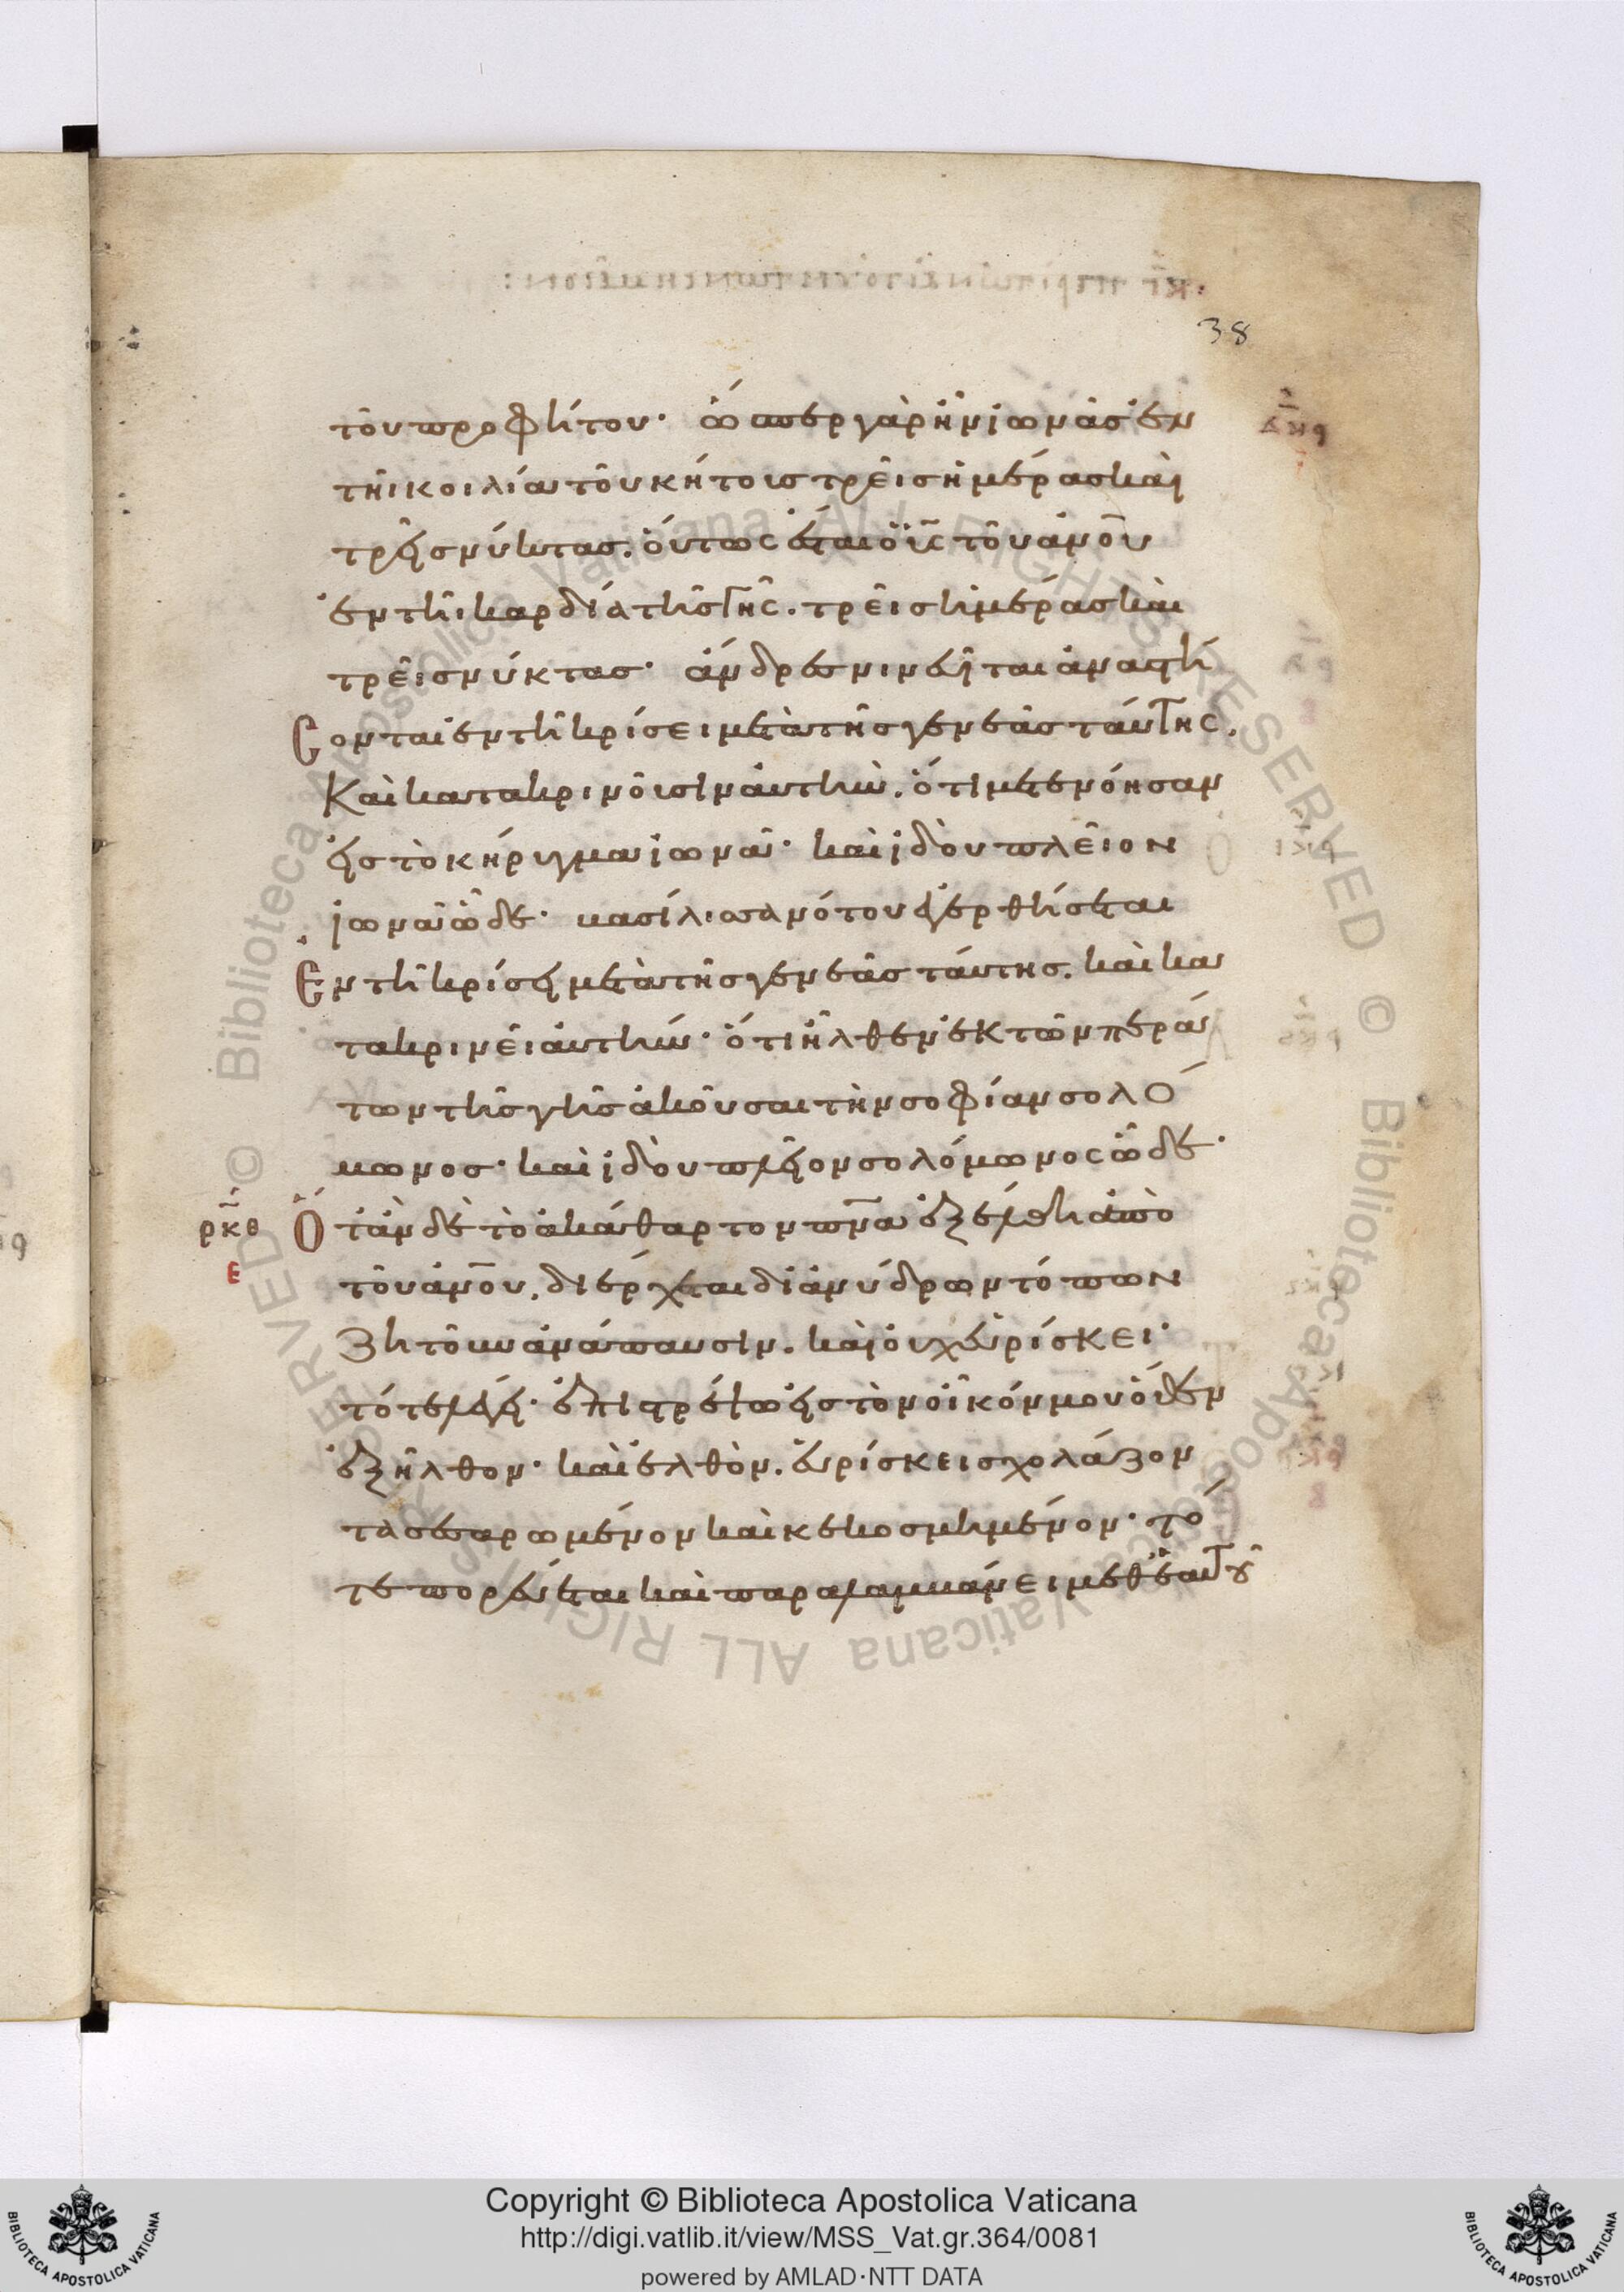 38
τοῦ προφήτου· ὥσπερ γὰρ ἦν ἰωνᾶς ἐν
τῆι κοιλία τοῦ κήτους τρεῖς ἡμέρας καὶ
τρεῖς νύκτας. οὕτως ἔσται ὁ υ̅ς̅ τοῦ α̅ν̅ο̅υ̅
ἐν τῆι καρδία τῆς γῆς. τρεῖς ἡμέρας καὶ
τρεῖς νύκτας· ἄνδρες νινευῖται ἀναστή
σονται ἐν τῆ κρίσει μετὰ τῆς γενεᾶς ταύτης.
Καὶ κατακρινοῦσιν αὐτήν. ὅτι μετενόησαν
εἰς τὸ κήρυγμα ἰωνᾶ· καὶ ἰδοὺ πλεῖον
ἰωνᾶ ὧδε· βασίλισσα νότου ἐγερθήσεται
Ἐν τῆ κρίσει μετὰ τῆς γενεᾶς ταύτης. καὶ κα
τακρινεῖ αὐτήν· ὅτι ἦλθεν ἐκ τῶν περά
των τῆς γῆς ἀκοῦσαι τὴν σοφίαν σολο
μῶνος· καὶ ἰδοὺ πλεῖον σολόμωνος ὧδε·
ρκθ Ὅταν δὲ τὸ ἀκάθαρτον π̅ν̅α̅ ἐξέλθη ἀπὸ
ε τοῦ α̅ν̅ο̅υ̅. διέρχεται δι ἀνύδρων τόπων
ζητοῦν ἀνάπαυσιν. καὶ οὐχ εὑρίσκει·
τότε λέγει· ἐπιστρέψω εἰς τὸν οἶκόν μου ὅθεν
ἐξῆλθον· καὶ ἐλθὸν. εὑρίσκει σχολάζον
τα σεσαρωμένον καὶ κεκοσμημένον· τό
τε πορεύεται καὶ παραλαμβάνει μεθ ἑαυτοῦ
Copyright © Biblioteca Apostolica Vaticana
http://digi.vatlib.it/view/MSS_Vat.gr.364/0081
powered by AMLAD·NTT DATA
BIBLIOTECA APOSTOLICA VATICANA
BIBLIOTECA APOSTOLICA VATICANA